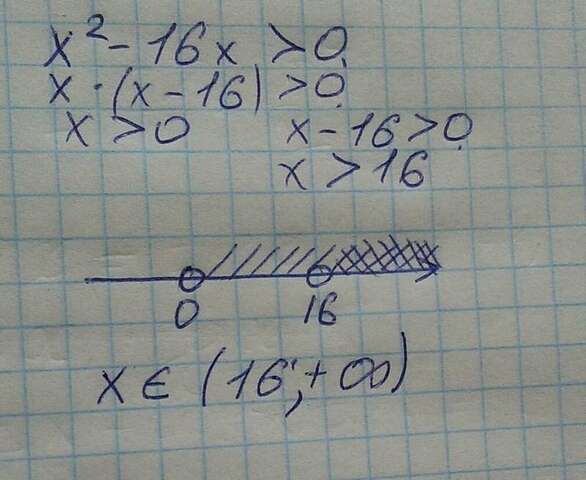 x² - 16x > 0
x · (x - 16) > 0
x > 0 x - 16 > 0
x > 16
0 16
x ∈ (16; +∞)